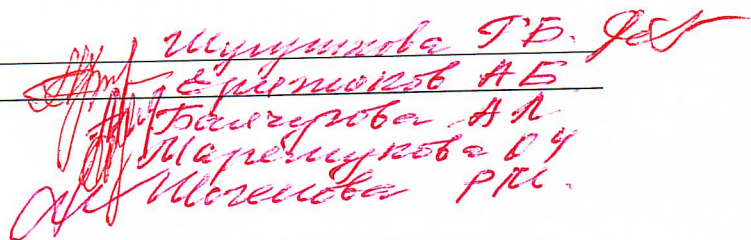 Шугушхова Г.Б.
Ерижоков АБ
Балчурова АЛ
Маремукова О Ч
Шогенова РМ.